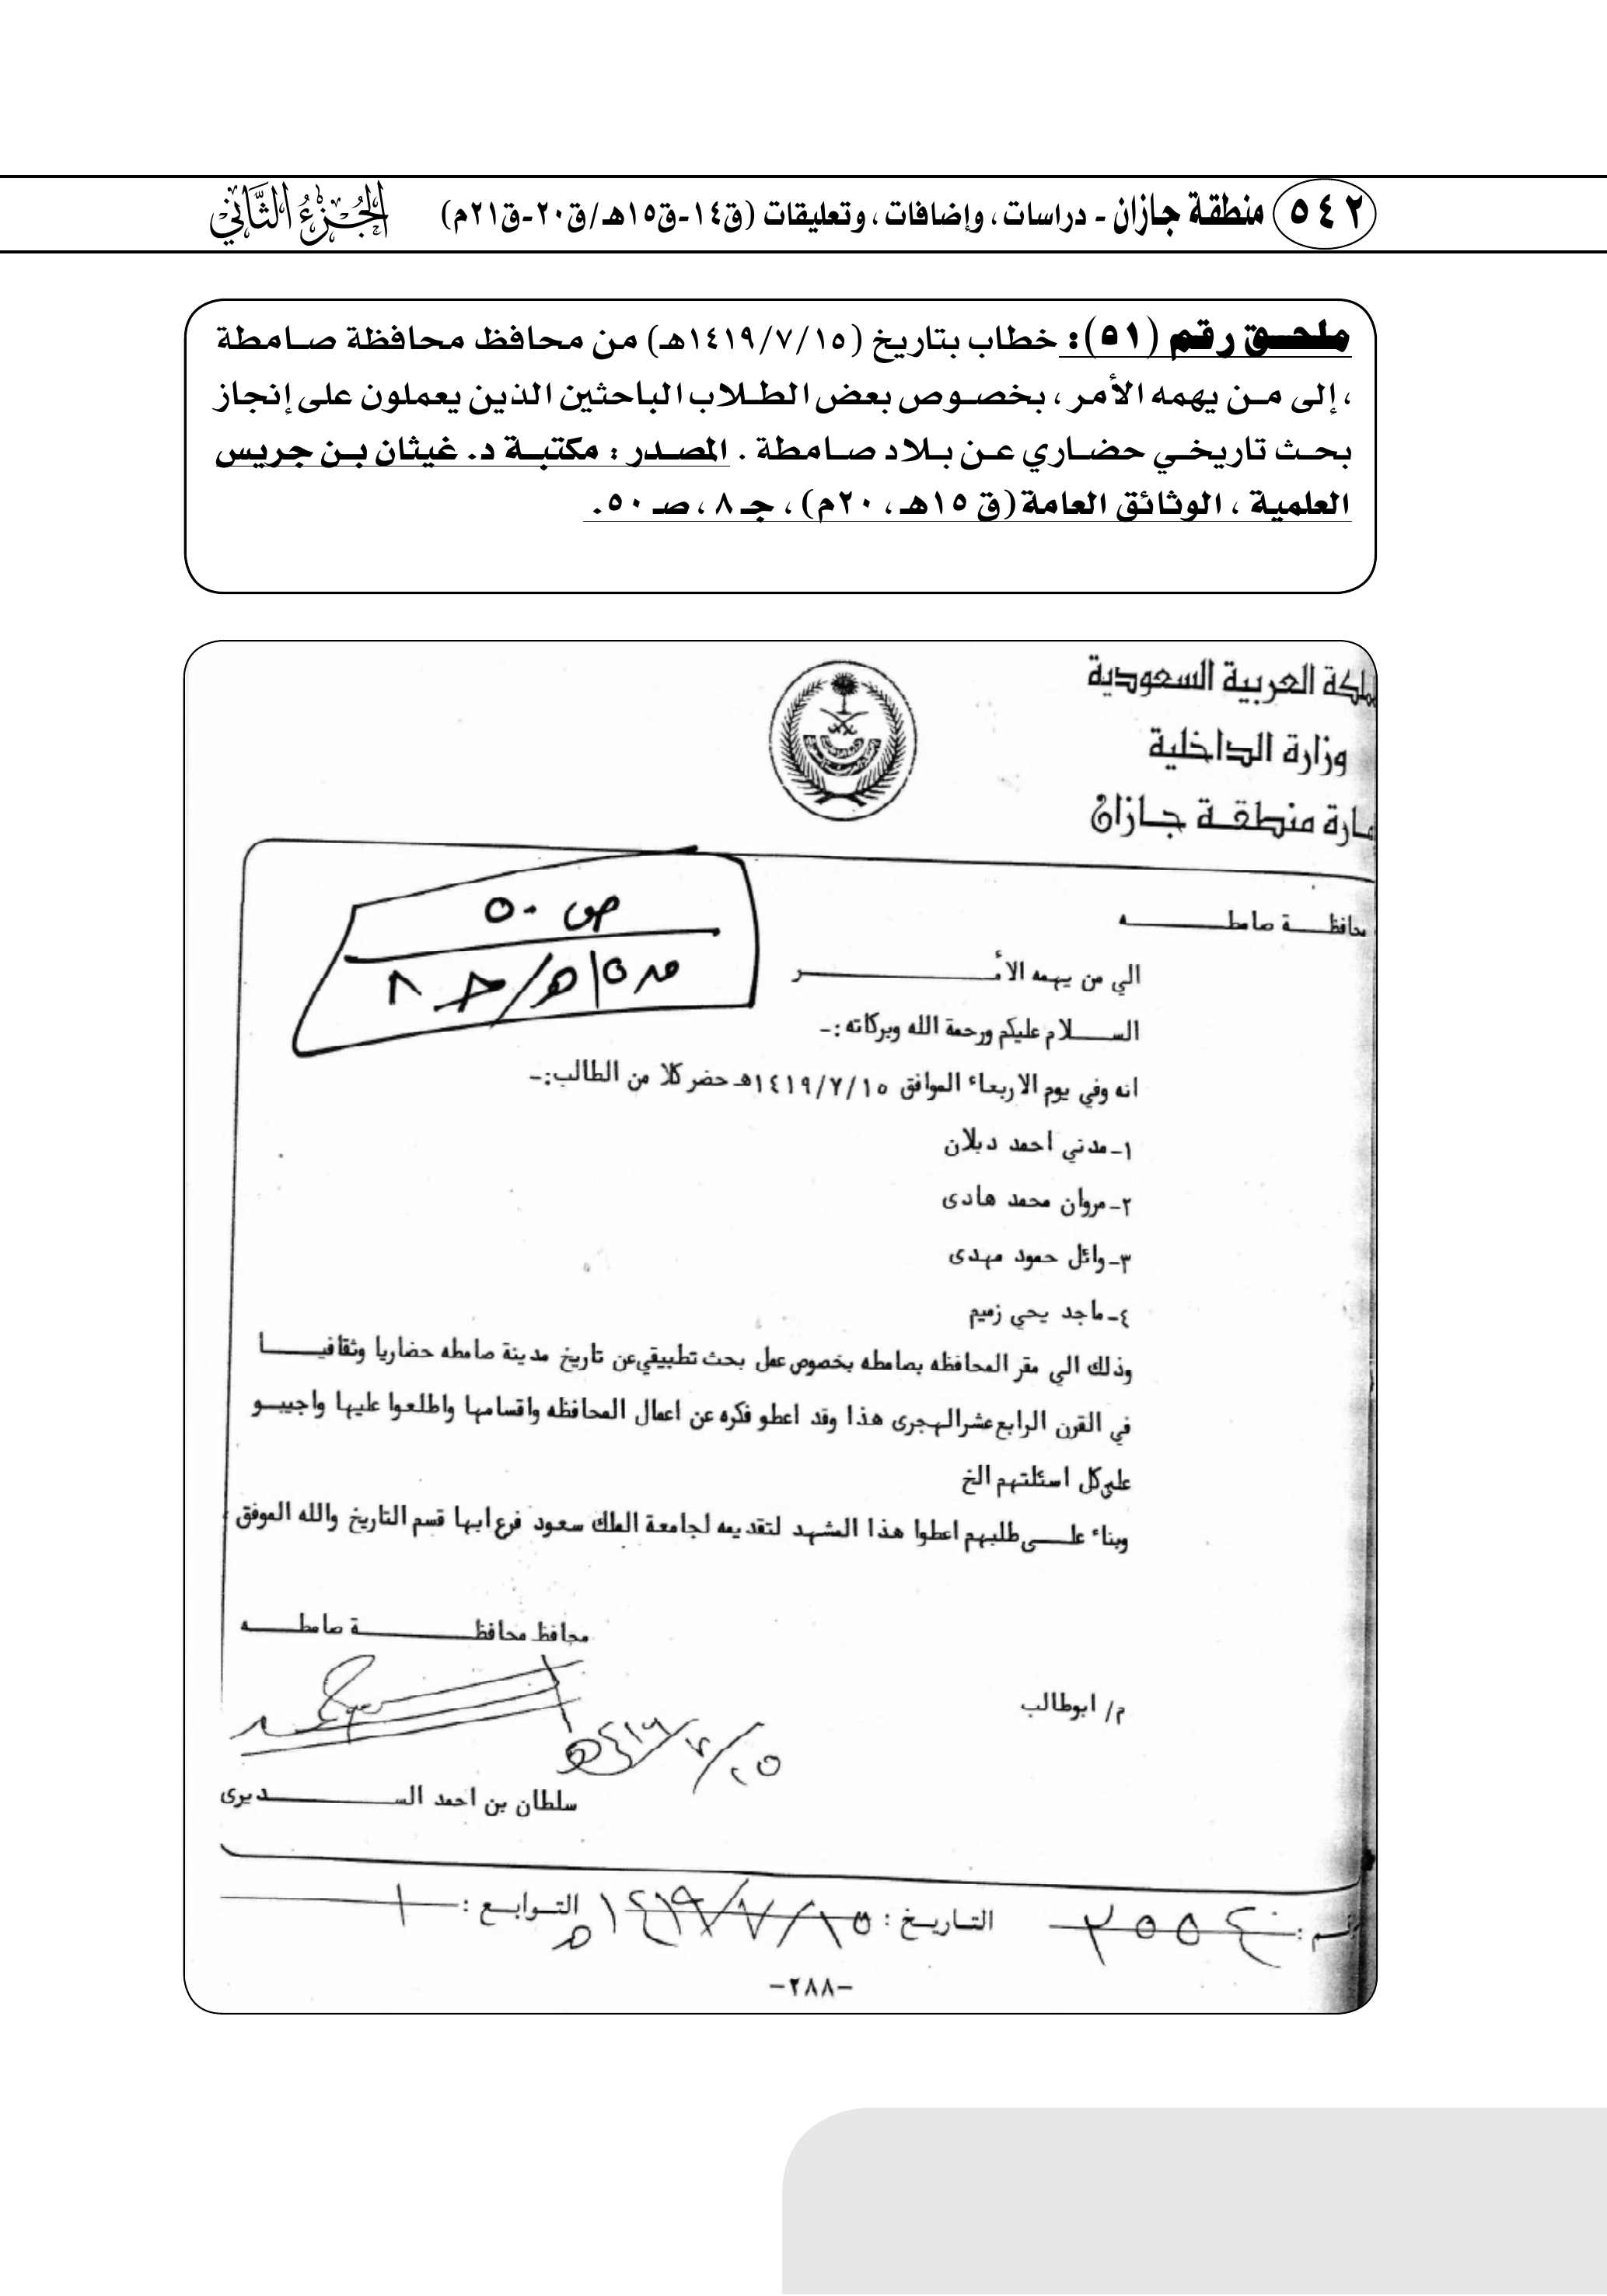 ٥٤٢ منطقة جازان - دراسات، وإضافات، وتعليقات (ق١٤-ق١٥هـ/ق٢٠-ق٢١م) الجزء الثاني
ملحق رقم (٥١): خطاب بتاريخ (١٤١٩/٧/١٥هـ) من محافظ محافظة صامطة
، إلى من يهمه الأمر، بخصوص بعض الطلاب الباحثين الذين يعملون على إنجاز
بحث تاريخي حضاري عن بلاد صامطة . المصدر : مكتبة د. غيثان بن جريس
العلمية ، الوثائق العامة (ق ١٥هـ، ٢٠م) ، جـ ٨ ، صـ ٥٠.
ملكة العربية السعودية
وزارة الداخلية
مارة منطقة جازان
محافظة صامطه
ص ٥٠
ق ١٥هـ/جـ ٨
الي من يهمه الأمر
السلام عليكم ورحمة الله وبركاته :-
انه وفي يوم الاربعاء الموافق ١٤١٩/٧/١٥هـ حضر كلا من الطالب:-
١-مدني احمد دبلان
٢-مروان محمد هادى
٣-وائل حمود مهدى
٤-ماجد يحي زميم
وذلك الي مقر المحافظه بصامطه بخصوص عمل بحث تطبيقي عن تاريخ مدينة صامطه حضاريا وثقافيا
في القرن الرابع عشر الهجرى هذا وقد اعطو فكره عن اعمال المحافظه واقسامها واطلعوا عليها واجيبو
علي كل اسئلتهم الخ
وبناء على طلبهم اعطوا هذا المشهد لتقديمه لجامعة الملك سعود فرع ابها قسم التاريخ والله الموفق
محافظ محافظة صامطه
م/ ابوطالب
سلطان بن احمد السديرى
التاريخ : ١٤١٩/٧/١٥هـ التوابع : ١
-٢٨٨-